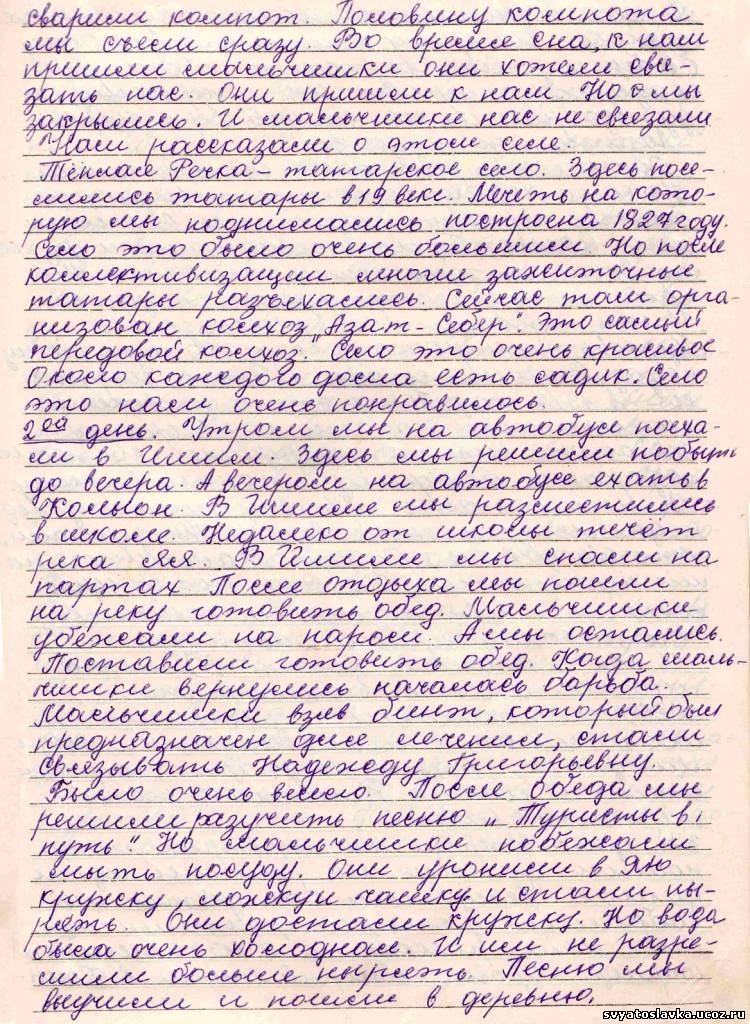 сварили компот. Половину компота
мы съели сразу. Во время сна, к нам
пришли мальчишки они хотели свя-
зать нас. Они пришли к нам. Но мы
закрылись. И мальчишки нас не связали
Нам рассказали о этом селе.
Тёплая Речка – татарское село. Здесь посе-
лились татары в 19 веке. Мечеть на кото-
рую мы поднимались построена 1927 году.
Село это было очень большим. Но после
коллективизации многие зажиточные
татары разъехались. Сейчас там орга-
низован колхоз „Азат-Себер". Это самый
передовой колхоз. Село это очень красивое
Около каждого дома есть садик. Село
это нам очень понравилось.
2ой день. Утром мы на автобусе поеха-
ли в Ишим. Здесь мы решили побыть
до вечера. А вечером на автобусе ехать в
Колыон. В Ишиме мы разместились
в школе. Недалеко от школы течёт
река Яя. В Ишиме мы спали на
партах. После отдыха мы пошли
на реку готовить обед. Мальчишки
убежали на паром. А мы остались.
Поставили готовить обед. Когда маль-
чишки вернулись началась барьба.
Мальчишки взяв бинт, который был
предназначен для лечения, стали
связывать Надежду Григорьевну.
Было очень весело. После обеда мы
решили разучить песню „Туристы в
путь". Но мальчишки побежали
мыть посуду. Они уронили в Яю
кружку, ложку и чашку и стали ны-
рять. Они достали кружку. Но вода
была очень холодная. И им не разре-
шили больше нырять. Песню мы
выучили и пошли в деревню.
svyatoslavka.ucoz.ru